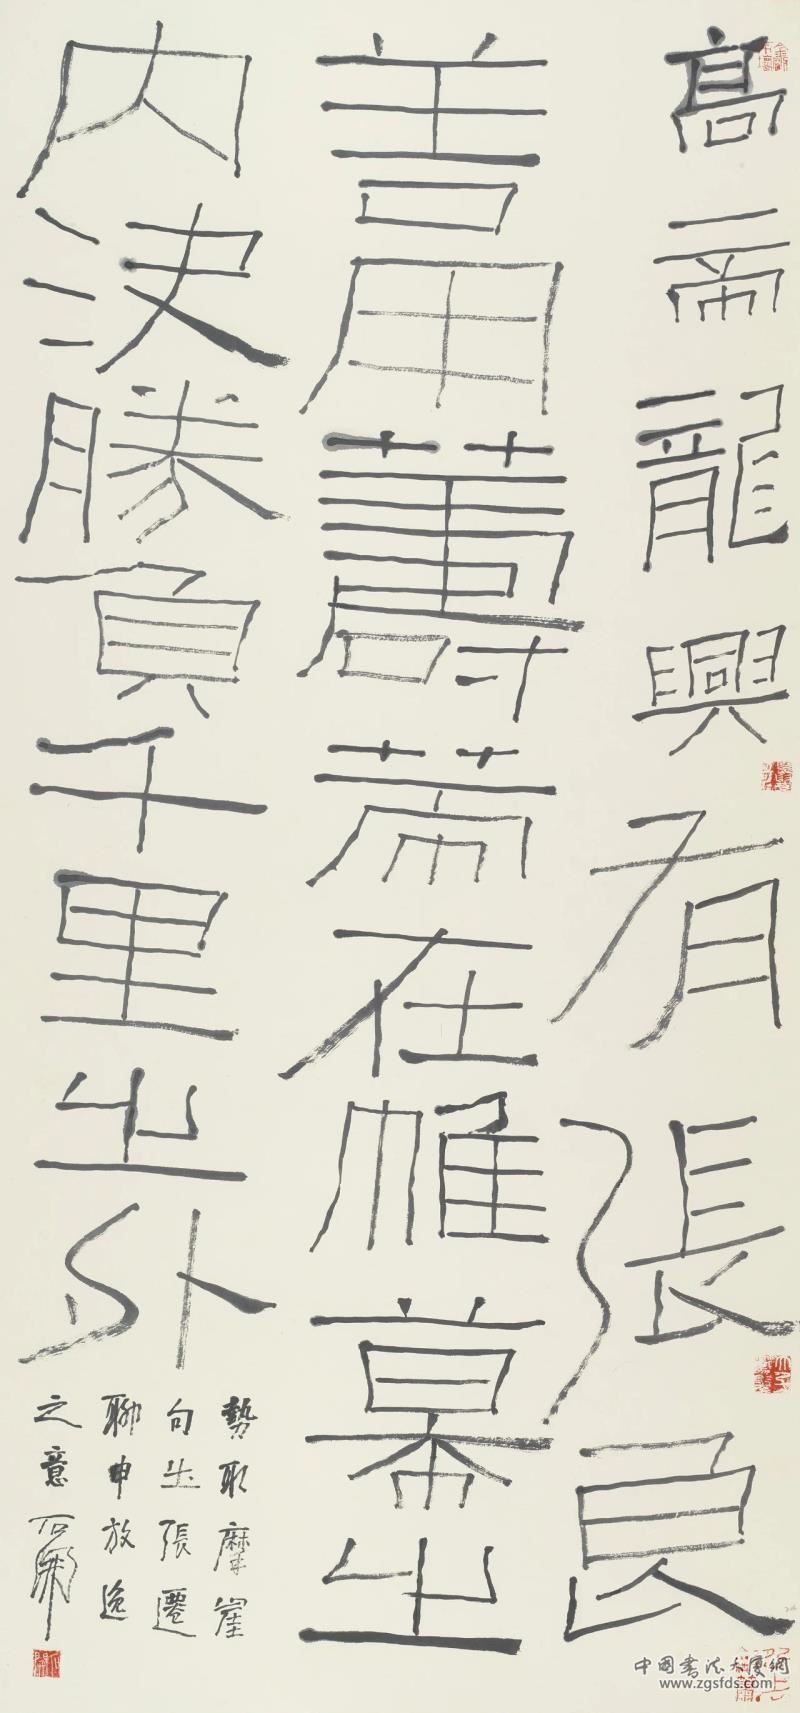 高帝龍興有張良
善用籌策在帷幕之
内決勝負千里之外
勢取摩崖
句出張遷
聊申放逸
之意 石開
中國書法大厦網
www.zgsfds.com